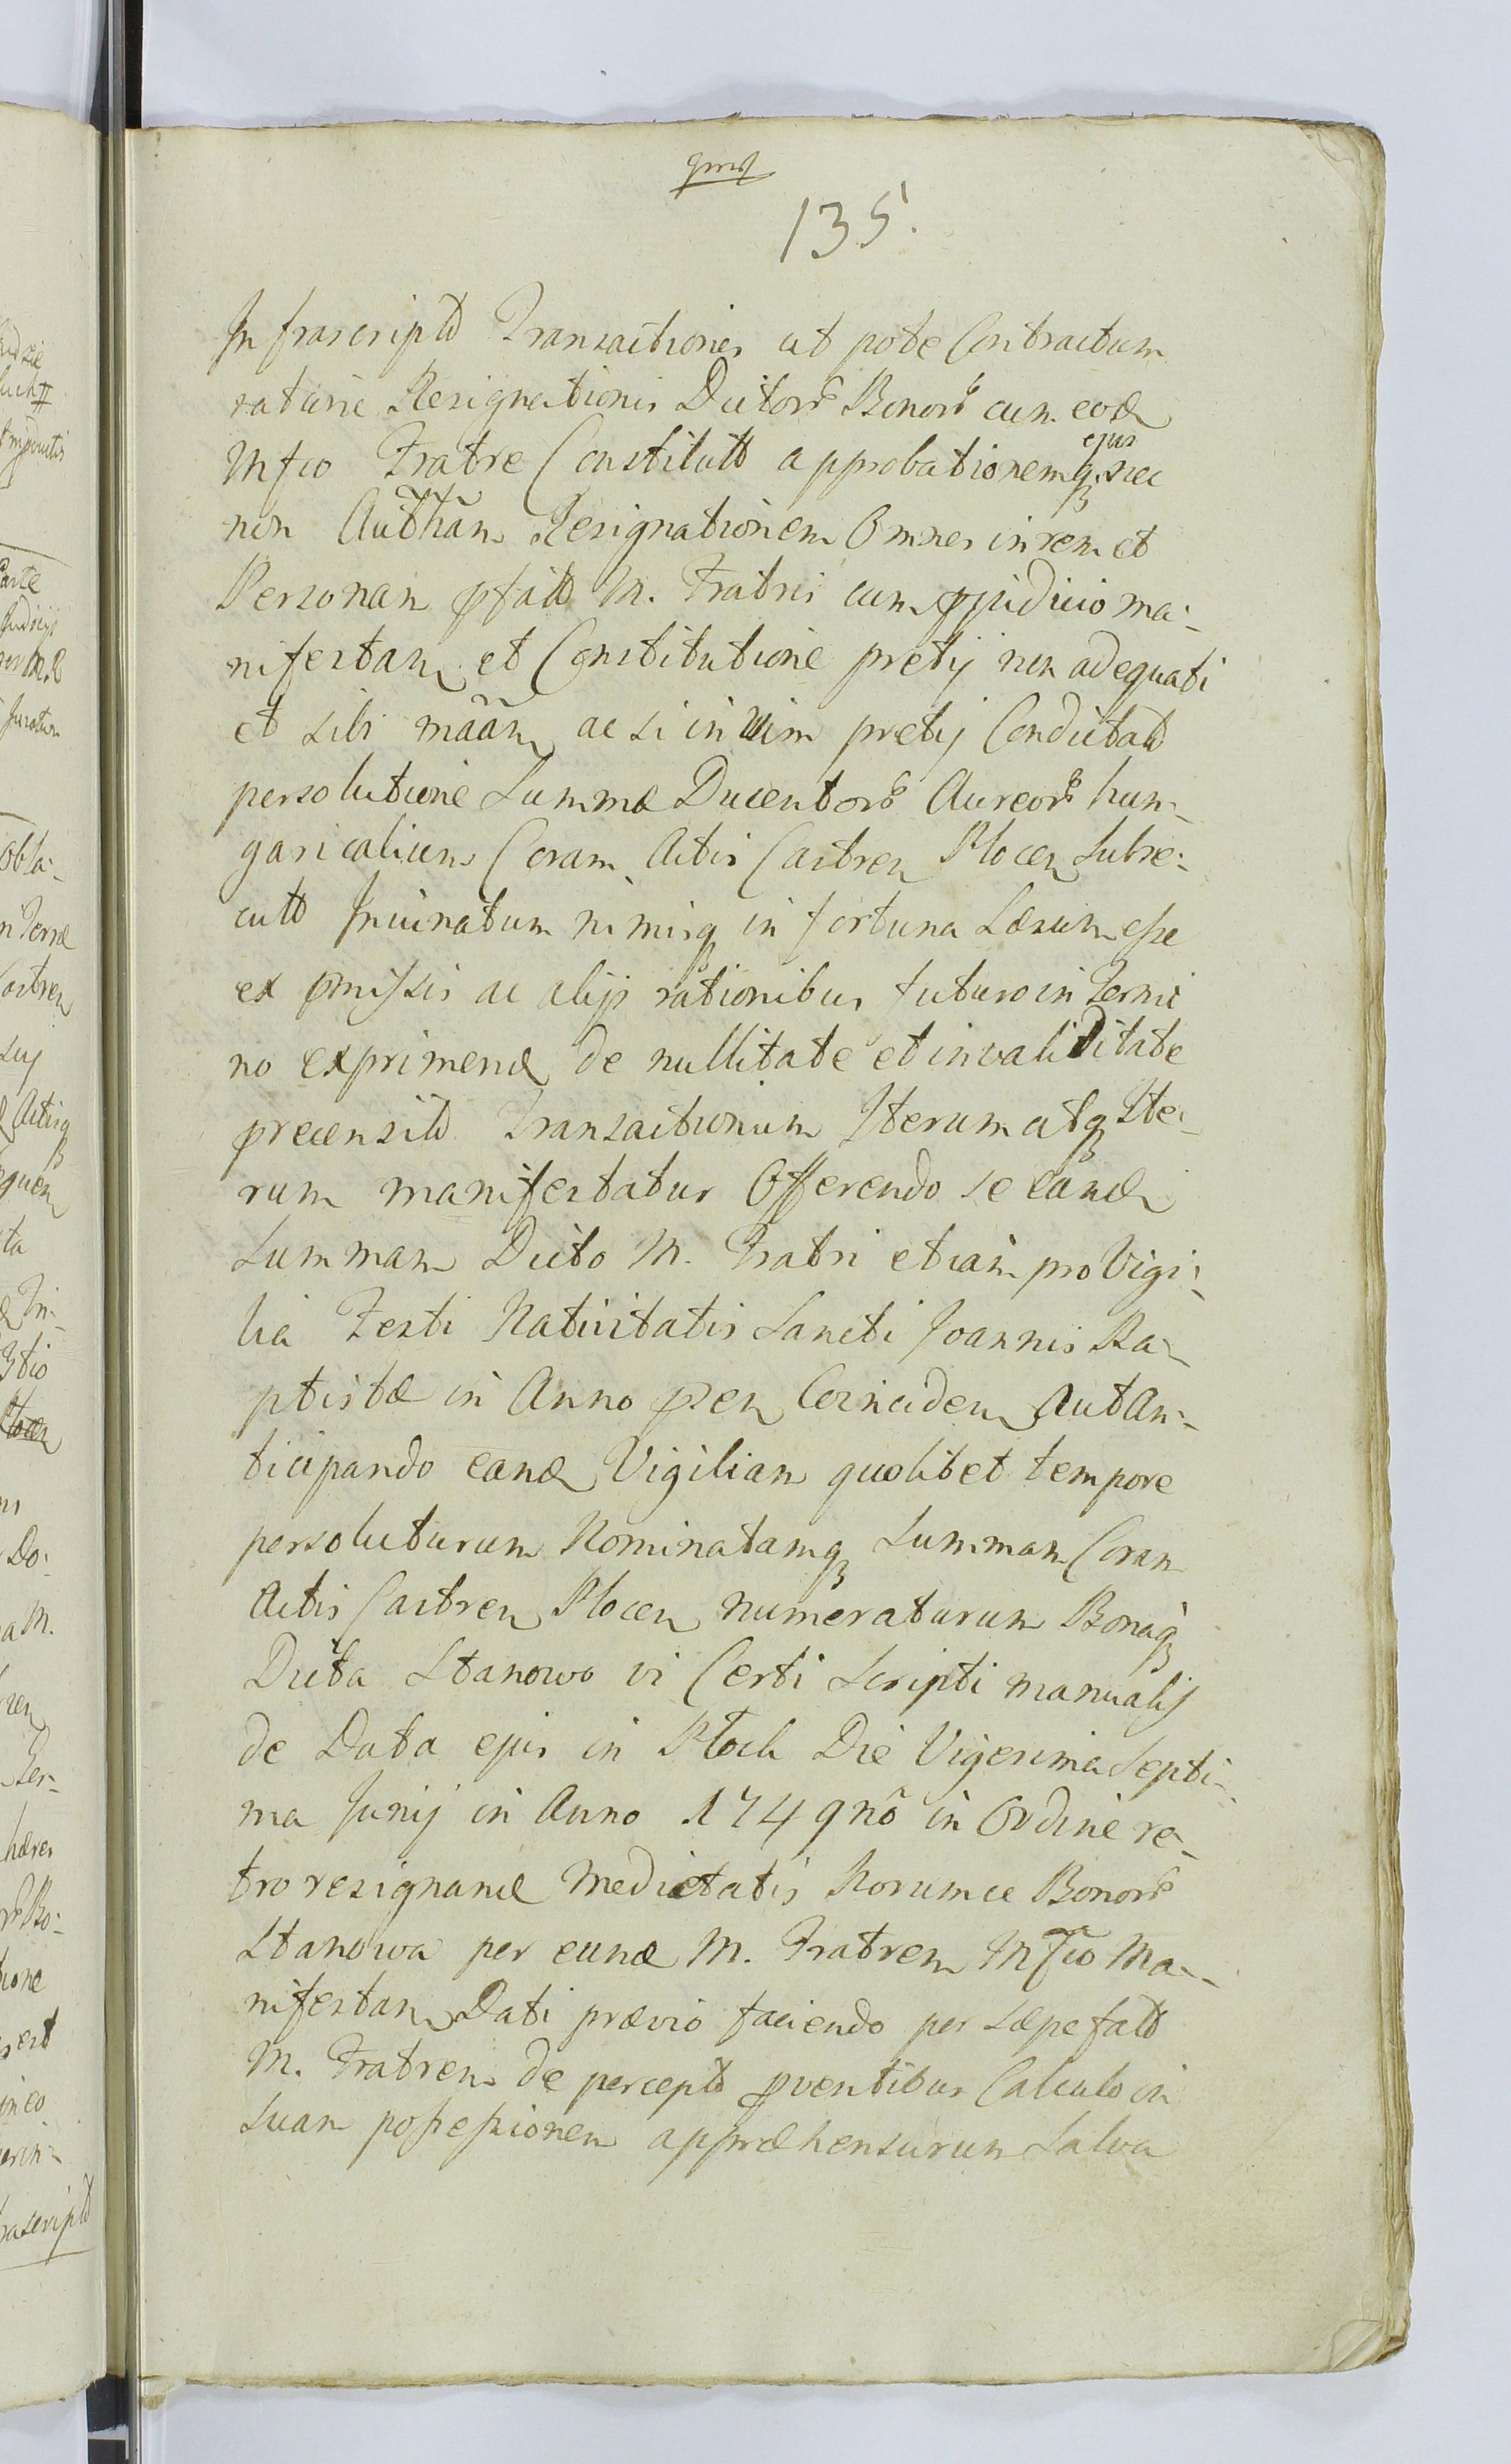 135.
Infrascriptt Transactiones ut pote Contractum
ratione Resignationis Dictorr Bonorr cum eod
Mfco Fratre Constitutt approbationemq ejus nec
non Autthan Resignationem Omnes in rem et
Personam pfatt M. Fratris cum pjudicio ma-
nifestan et Constitutione pretij non adequati
et sibi maan ac si in Vim pretij Condictatt
persolutione Summæ Ducentorr Aureorr hun-
garicalium Coram Actis Castren Plocen Subse-
cutt Inuinatum nimisq in fortuna Læsum esse
ex pmissis ac alijs rationibus futuro in Termi
no exprimend de nullitate et invaliditate
precensitt Transactionum Iterum atq Ite-
rum manifestatur Offerendo se eand
Summam Dicto M. Fratri etiam pro Vigi-
lia Festi Nativitatis Sancti Joannis Ba-
ptistæ in Anno psen Coinciden Aut An-
ticipando eand Vigiliam quolibet tempore
persoluturum Nominatamq Summam Coram
Actis Castren Plocen numeraturum Bonaq
Dicta Stanowo vi Certi Scripti manualis
de Data ejus in Plock Die Vigesima Septi-
ma Junij in Anno 1749no in Ordine re-
troresignand Medietatis Horumce Bonorr
Stanowa per eund M. Fratrem Mfco Ma-
nifestan Dati prævio faciendo per sæpefatt
M. Fratrem de perceptt pventibus Calculo in
Suam possessionem appræhensurum Salva